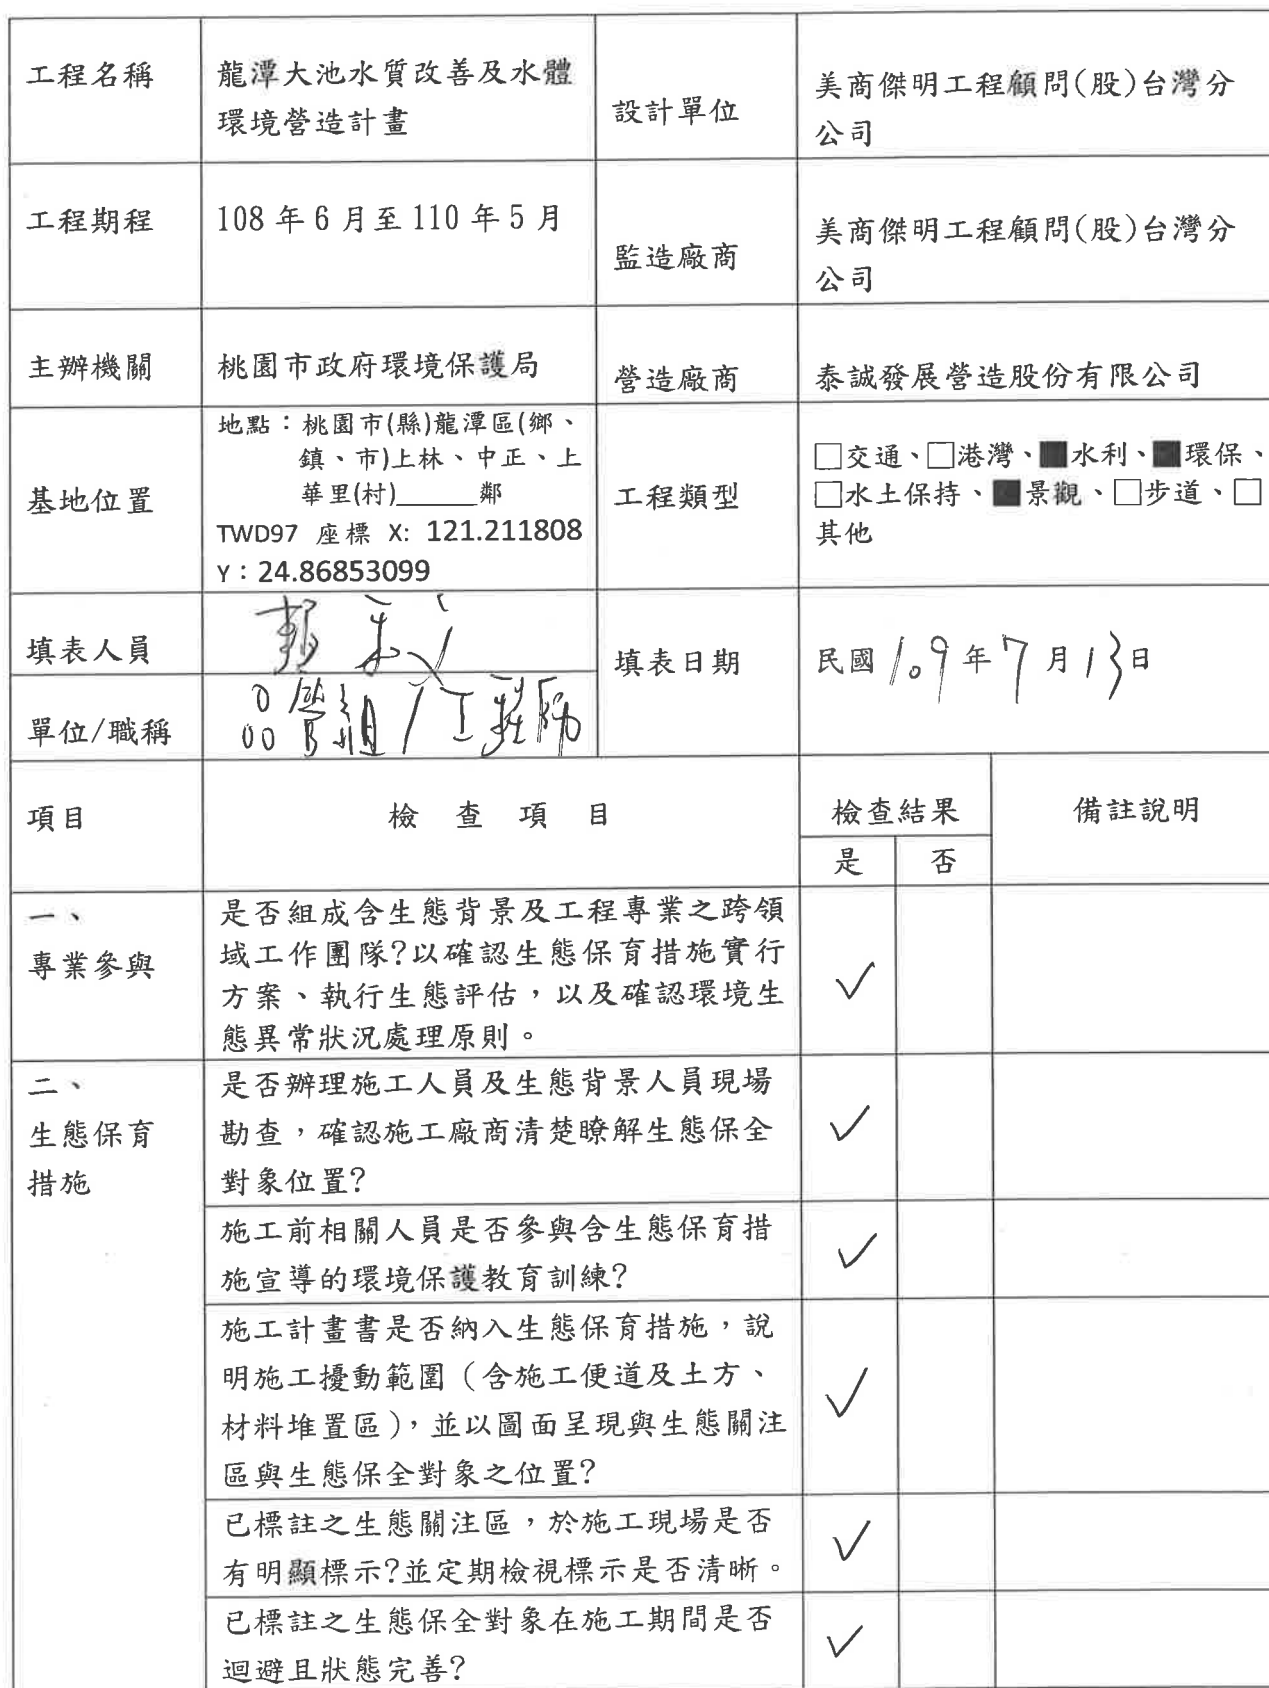 工程名稱
龍潭大池水質改善及水體
環境營造計畫
設計單位
美商傑明工程顧問(股)台灣分
公司
工程期程
108 年 6 月至 110 年 5 月
監造廠商
美商傑明工程顧問(股)台灣分
公司
主辦機關
桃園市政府環境保護局
營造廠商
泰誠發展營造股份有限公司
基地位置
地點：桃園市(縣)龍潭區(鄉、
鎮、市)上林、中正、上
華里(村)______鄰
TWD97 座標 X: 121.211808
Y：24.86853099
工程類型
□交通、□港灣、■水利、■環保、
□水土保持、■景觀、□步道、□
其他
填表人員
填表日期
民國 109 年 7 月 13 日
單位/職稱
品管組/工程師
項目
檢 查 項 目
檢查結果
備註說明
是
否
一、
專業參與
是否組成含生態背景及工程專業之跨領
域工作團隊?以確認生態保育措施實行
方案、執行生態評估，以及確認環境生
態異常狀況處理原則。
✓
二、
生態保育
措施
是否辦理施工人員及生態背景人員現場
勘查，確認施工廠商清楚瞭解生態保全
對象位置?
✓
施工前相關人員是否參與含生態保育措
施宣導的環境保護教育訓練?
✓
施工計畫書是否納入生態保育措施，說
明施工擾動範圍（含施工便道及土方、
材料堆置區），並以圖面呈現與生態關注
區與生態保全對象之位置?
✓
已標註之生態關注區，於施工現場是否
有明顯標示?並定期檢視標示是否清晰。
✓
已標註之生態保全對象在施工期間是否
迴避且狀態完善?
✓